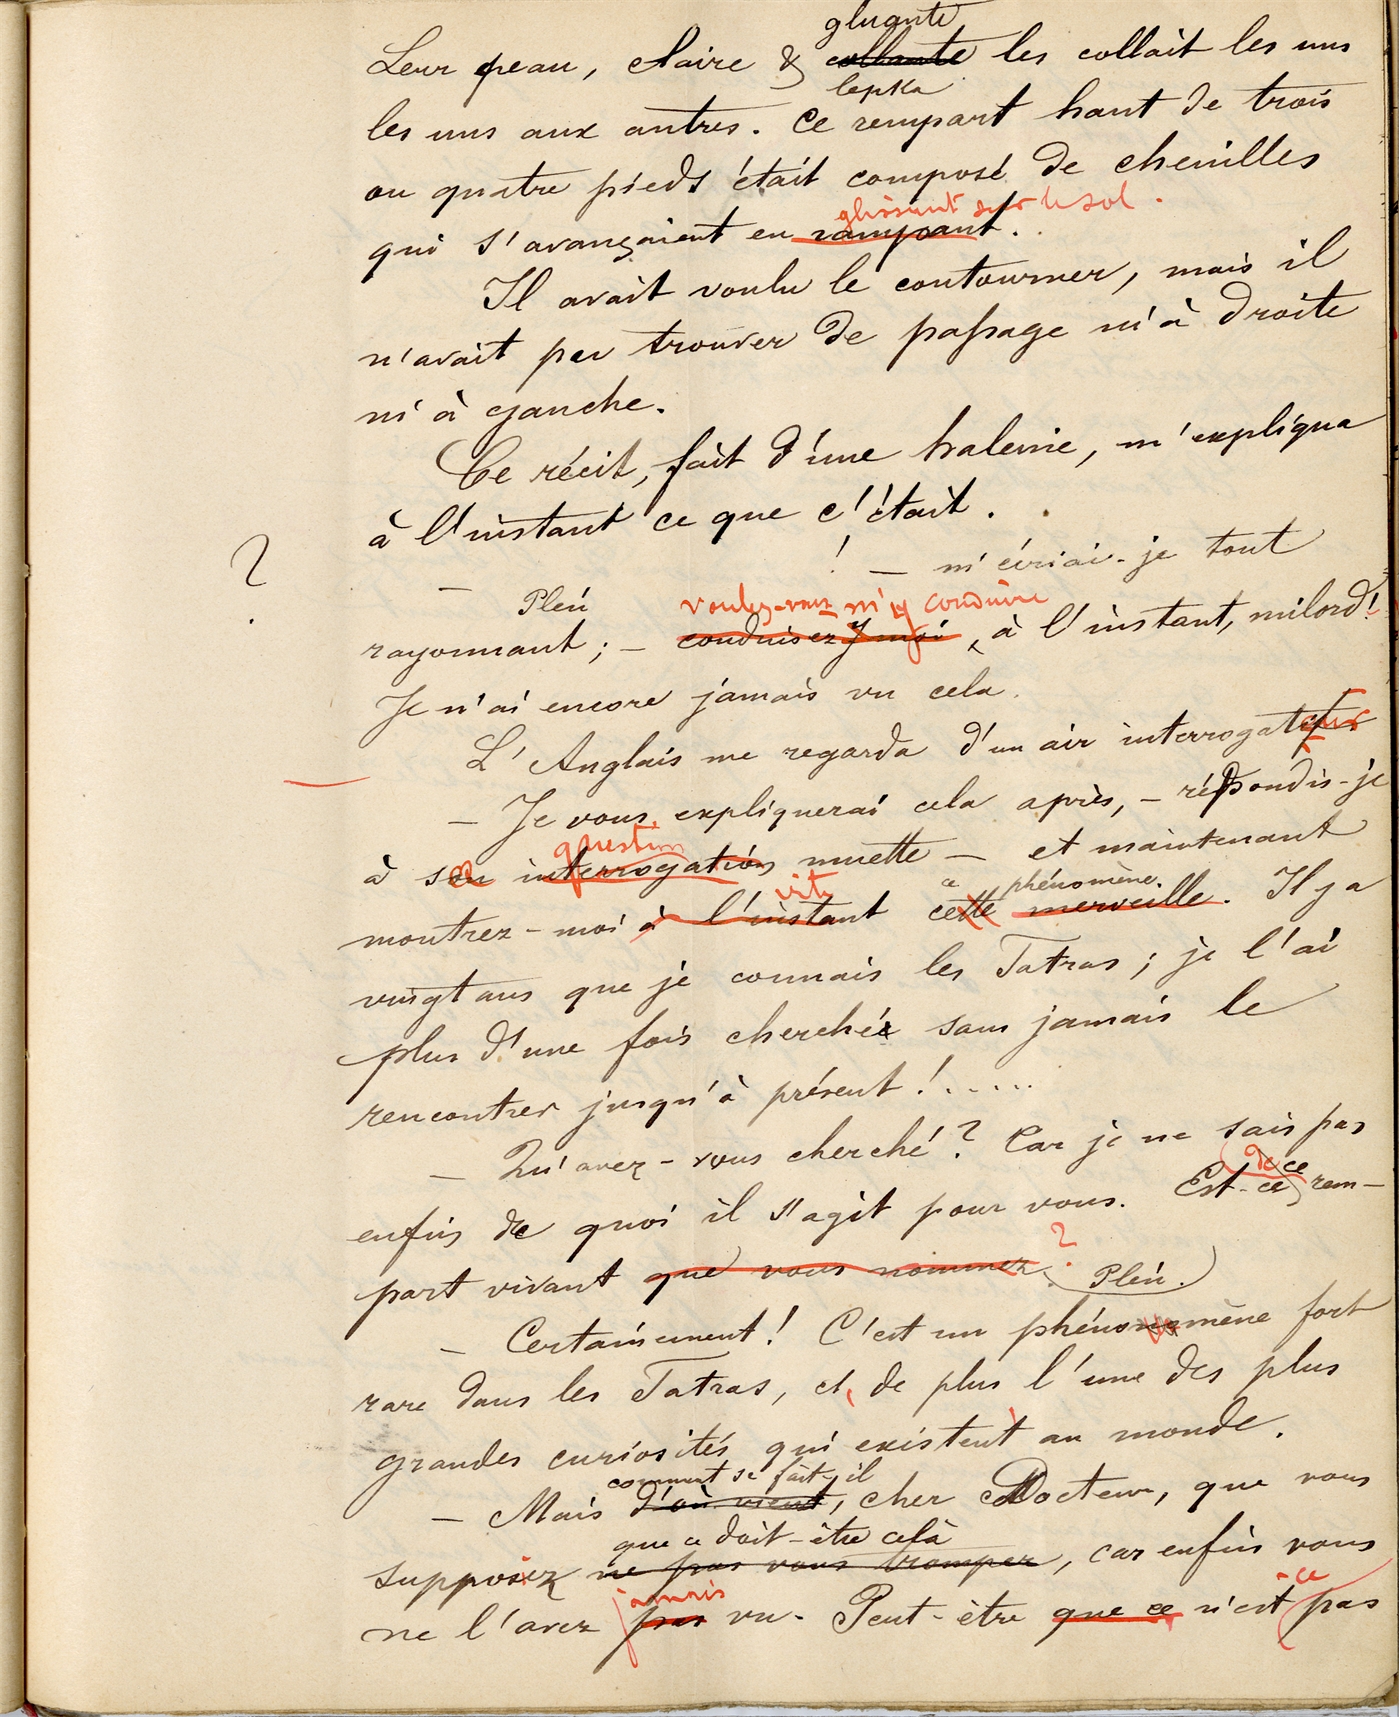 gluante
Leur peau, claire & collante les collait les uns
lepka
les uns aux autres. Ce rempart haut de trois
ou quatre pieds était composé de chenilles
glissant sur le sol.
qui s'avançaient en rampant.
Il avait voulu le contourner, mais il
n'avait pu trouver de passage ni à droite
ni à gauche.
Ce récit, fait d'une haleine, m'expliqua
à l'instant ce que c'était.
?
— Pleń ! — m'écriai-je tout
voulez-vous m'y conduire
rayonnant ; — conduisez y moi, à l'instant, milord!
Je n'ai encore jamais vu cela.
L'Anglais me regarda d'un air interrogateur
— Je vous expliquerai cela après, — répondis-je
question
à son interrogation muette — et maintenant
vite ce phénomène.
montrez-moi à l'instant cette merveille. Il y a
vingt ans que je connais les Tatras ; je l'ai
plus d'une fois cherché sans jamais le
rencontrer jusqu'à présent !.....
— Qu'avez-vous cherché ? Car je ne sais pas
de ce
enfin de quoi il s'agit pour vous. Est-ce rem-
part vivant que vous nommez ? Pleń.
— Certainement ! C'est un phénomène fort
rare dans les Tatras, et, de plus l'une des plus
grandes curiosités qui existent au monde.
comment se fait-il
— Mais d'où vient, cher Docteur, que vous
que ce doit-être celà
supposiez ne pas vous tromper, car enfin vous
jamais -ce
ne l'avez pas vu. Peut-être que ce n'est pas